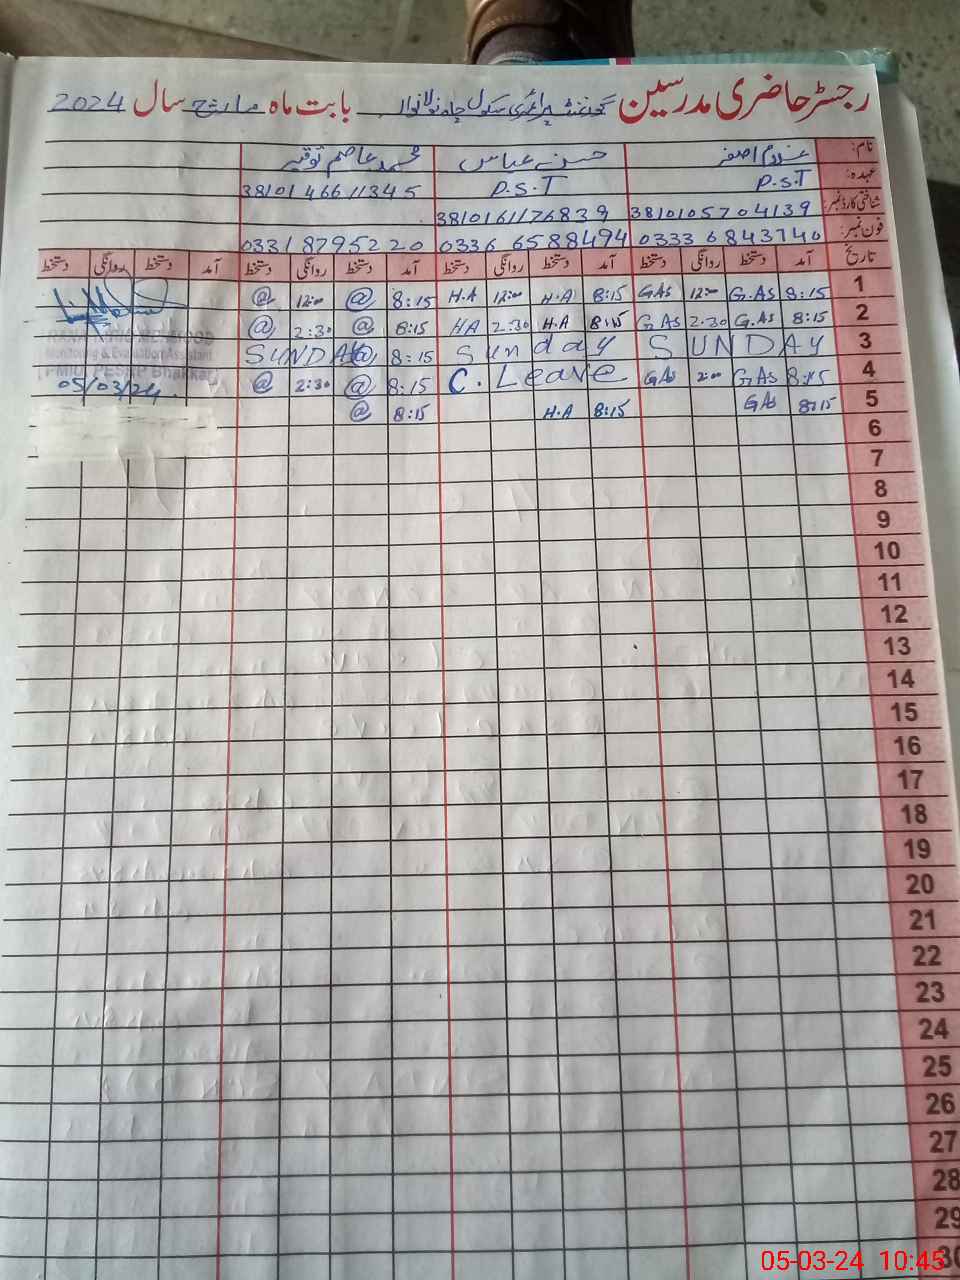 رجسٹر حاضری مدرسین گورنمنٹ پرائمری سکول چاہ نولانوالہ بابت ماہ مارچ سال 2024
نام: غلام اصغر حسن عباس محمد عاصم توقیر
عہدہ: P.S.T P.S.T
شناختی کارڈ نمبر: 3810105704139 3810161176839 3810146611345
فون نمبر: 0333 6843740 0336 6588494 0331 8795220
تاریخ آمد دستخط روانگی دستخط آمد دستخط روانگی دستخط آمد دستخط روانگی دستخط آمد دستخط روانگی دستخط
1 8:15 G.AS 12:00 GAS 8:15 H.A 12:00 H.A 8:15 @ 12:00 @
2 8:15 G.AS 2:30 GAS 8:15 H.A 2:30 HA 8:15 @ 2:30 @
3 SUNDAY Sunday SUNDAY @ 8:15
4 8:15 GAS 2:00 GAS C. Leave 8:15 @ 2:30 @
5 8:15 GAS 8:15 H.A 8:15 @
RANA RIAZ MEHMOOD
Monitoring & Evaluation Assistant
(PMIU, PESRP Bhakkar)
05/03/24
6
7
8
9
10
11
12
13
14
15
16
17
18
19
20
21
22
23
24
25
26
27
28
29
30
05-03-24 10:45